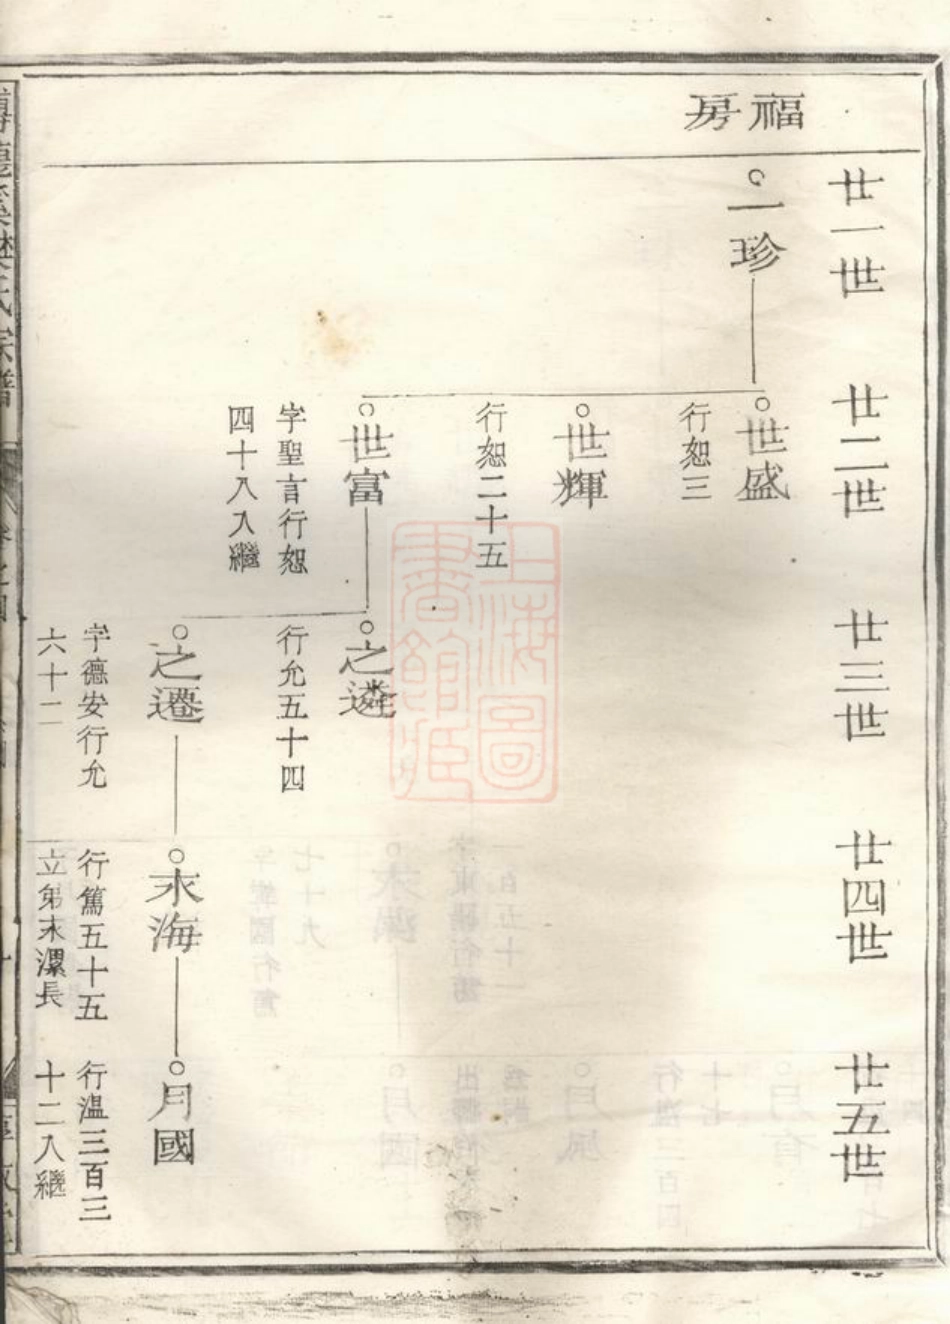 福房
廿一世
廿二世
廿三世
廿四世
廿五世
一珍
世盛
行恕三
世輝
行恕二十五
世富
字聖言行恕
四十八入繼
之遴
行允五十四
之遷
字德安行允
六十二
永海
行篤五十五
立弟永漯長
月國
行溫三百三
十二入繼
氏宗譜
上海圖
書館藏